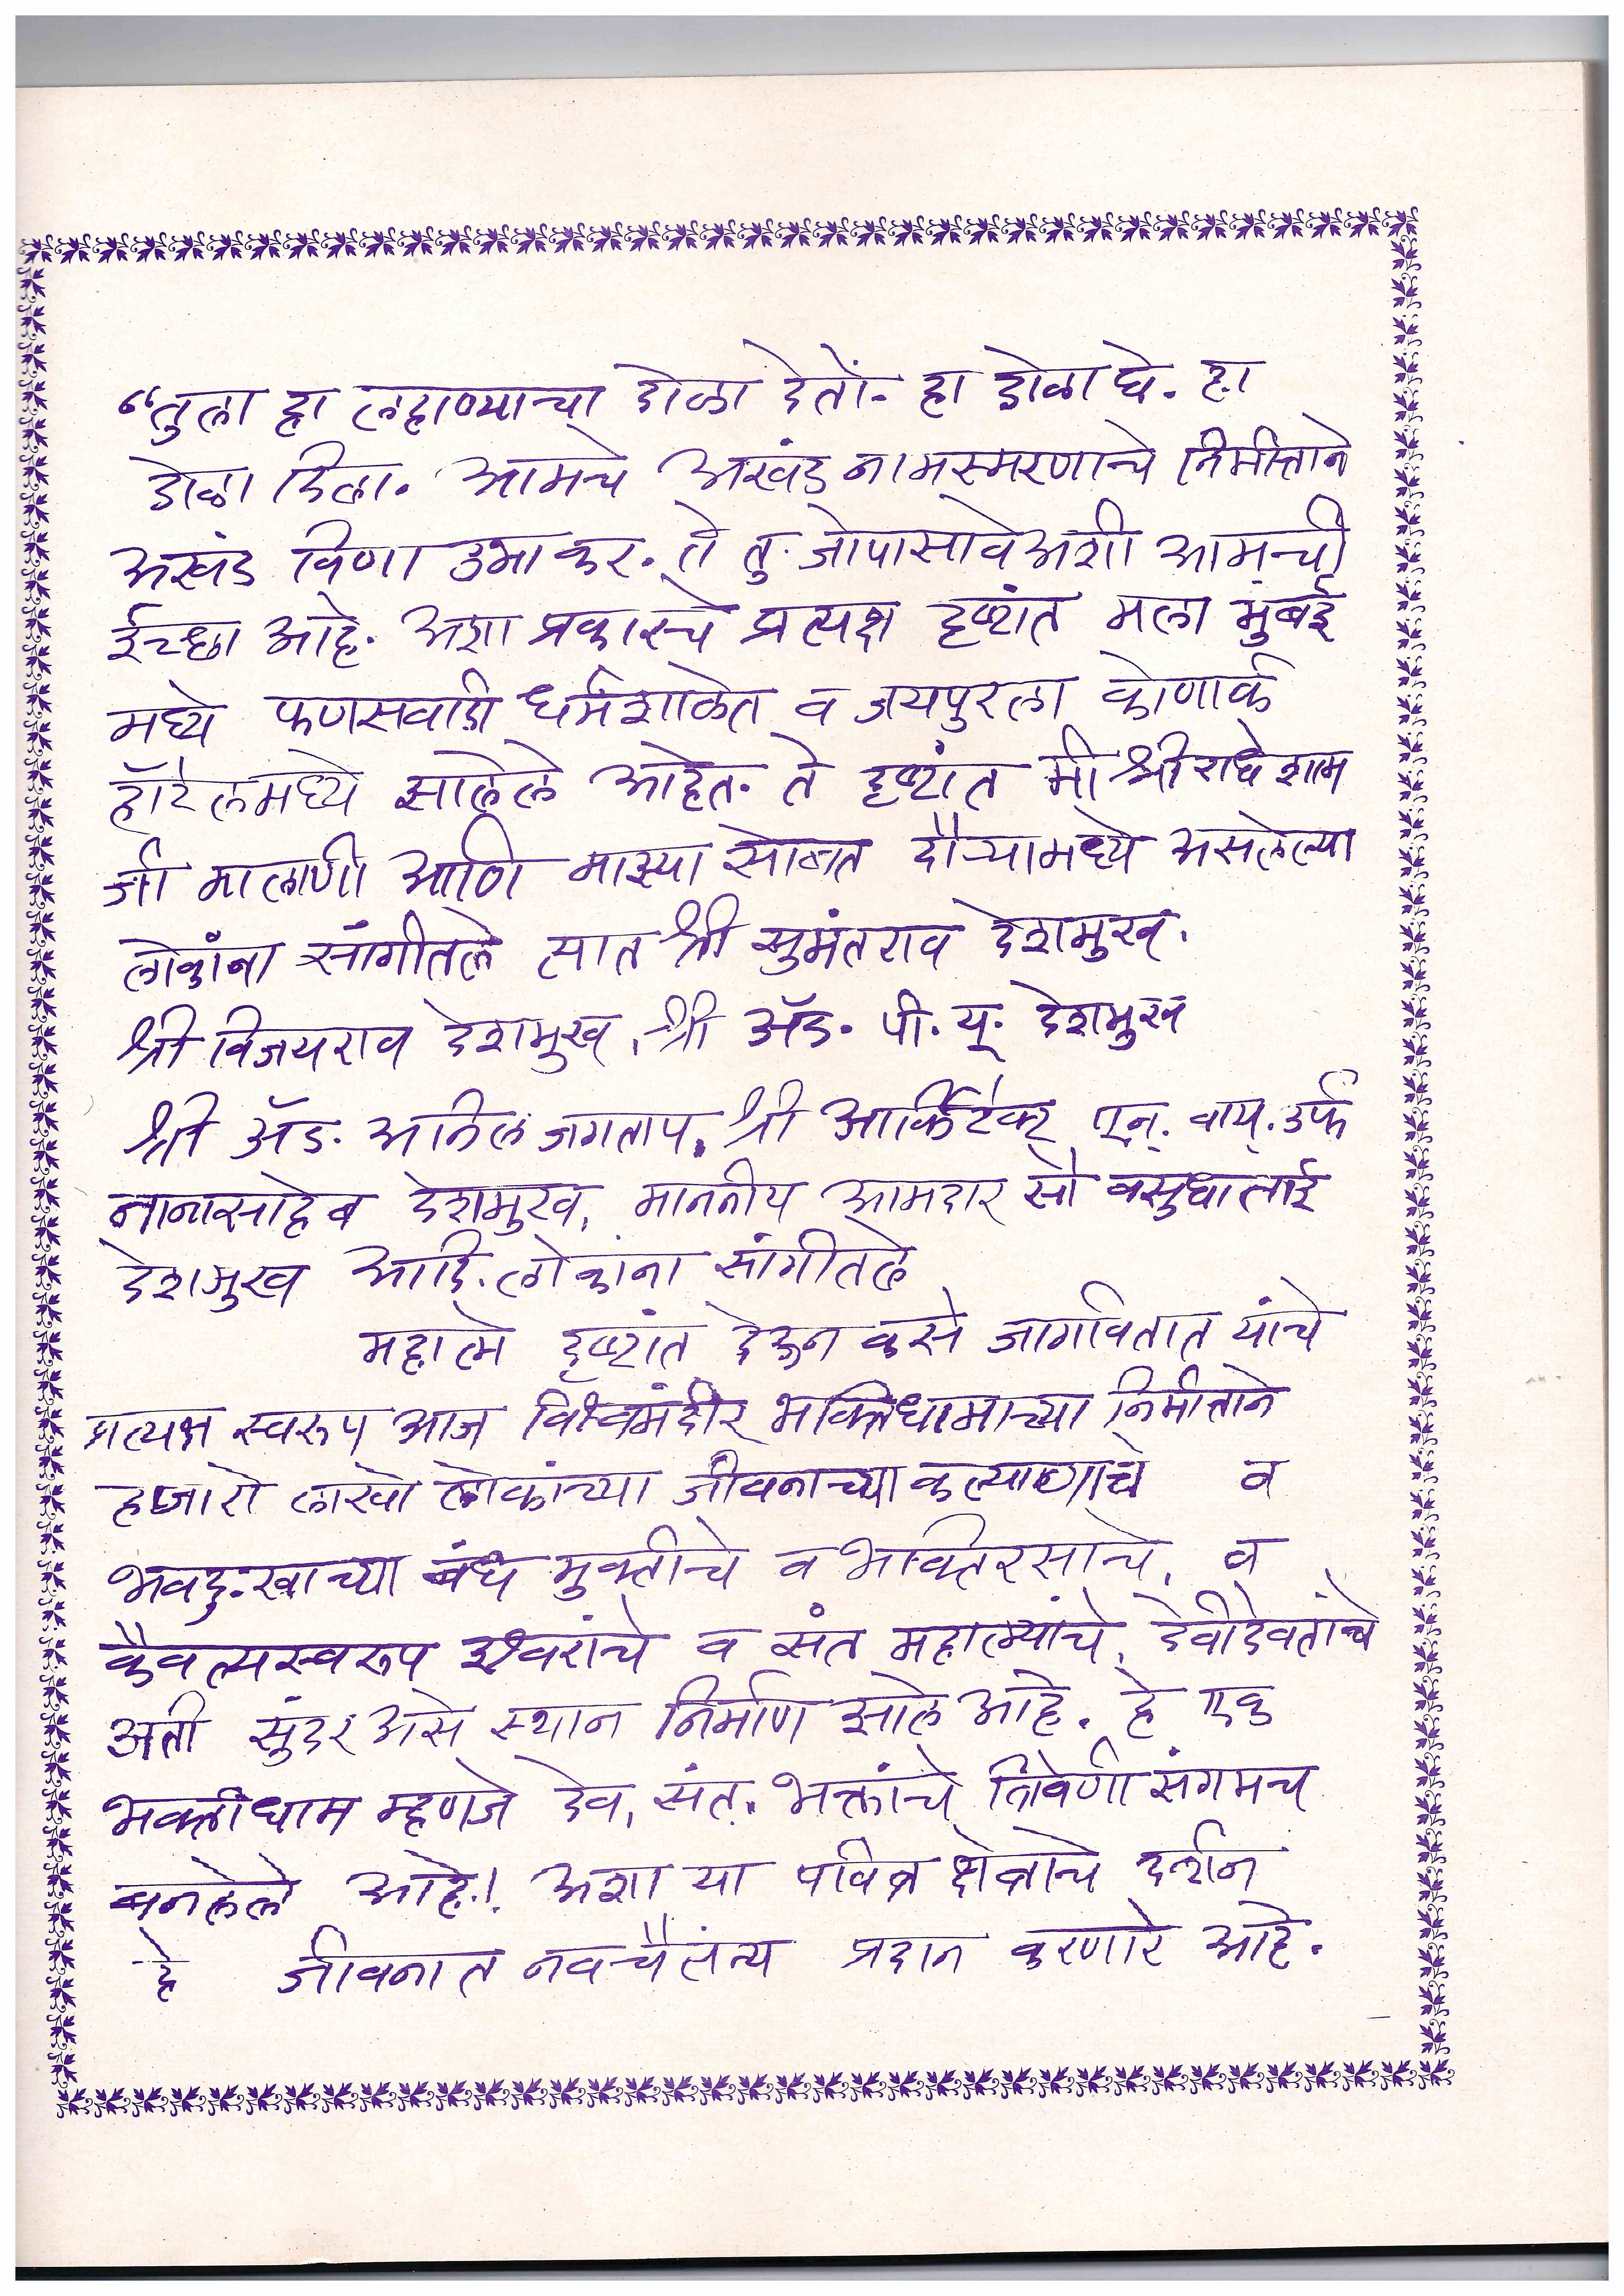 “तुला हा लहाण्याचा डोळा देतों- हा डोळा घे. हा
डोळा दिला. आमचे अखंड नामस्मरणाचे निमीत्ताने
अखंड विणा उभा कर. ते तु जोपासावे अशी आमची
ईच्छा आहे. अशा प्रकारचे प्रत्यक्ष दृष्टांत मला मुंबई
मध्ये फणसवाडी धर्मशाळेत व जयपुरला कोणार्क
हॉटेलमध्ये झालेले आहेत. ते दृष्टांत मी श्री राधेशाम
जी मालाणी आणि माझ्या सोबत दौऱ्यामध्ये असलेल्या
लोकांना सांगीतले त्यात श्री सुमंतराव देशमुख,
श्री विजयराव देशमुख, श्री ॲड. पी. यू. देशमुख
श्री ॲड. अनिल जगताप, श्री आर्किटेक्ट एन्. वाय्. उर्फ
नानासाहेब देशमुख, माननीय आमदार सौ वसुधाताई
देशमुख आदि. लोकांना सांगीतले
महात्मे दृष्टांत देऊन कसे जागवितात यांचे
प्रत्यक्ष स्वरूप आज विश्वमंदीर भक्तिधामाच्या निर्मीत्ताने
हजारो लाखो लोकांच्या जीवनाच्या कल्याणाचे व
भवदु:खाच्या बंध मुक्तीचे व भक्तिरसाचे, व
कैवल्यस्वरूप ईश्वरांचे व संत महात्म्यांचे, देवीदेवतांचे
अती सुंदर असे स्थान निर्माण झाले आहे. हे एक
भक्तीधाम म्हणजे देव, संत, भक्तांचे त्रिवेणी संगमच
बनलेले आहे! अशा या पवित्र क्षेत्राचे दर्शन
हे जीवनात नवचैतंन्य प्रदान करणारे आहे.